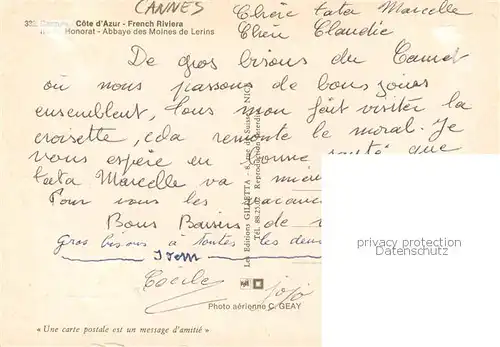 CANNES
Côte d'Azur - French Riviera
Honorat - Abbaye des Moines de Lerins
Chère tata Marcelle
Cher Claudie
De gros bisous du Cannet
où nous passons de bons jours
ensemblent, Tous mon fait visiter la
croisette, cela remonte le moral. Je
vous espère en bonne santé que
tata Marcelle va
Pour vous les
Bons Baisers de
Gros bisous à toutes les
Idem
Cécile
jojo
Les Editions GILLETTA - 8, rue de Suisse NICE
Reproduction interdite
Photo aérienne C. GEAY
« Une carte postale est un message d'amitié »
privacy protection
Datenschutz